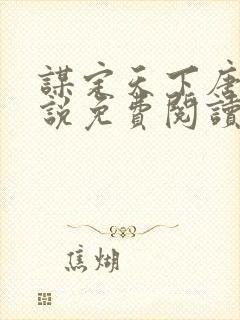 謀定天下唐
說免費閱讀
焦煳